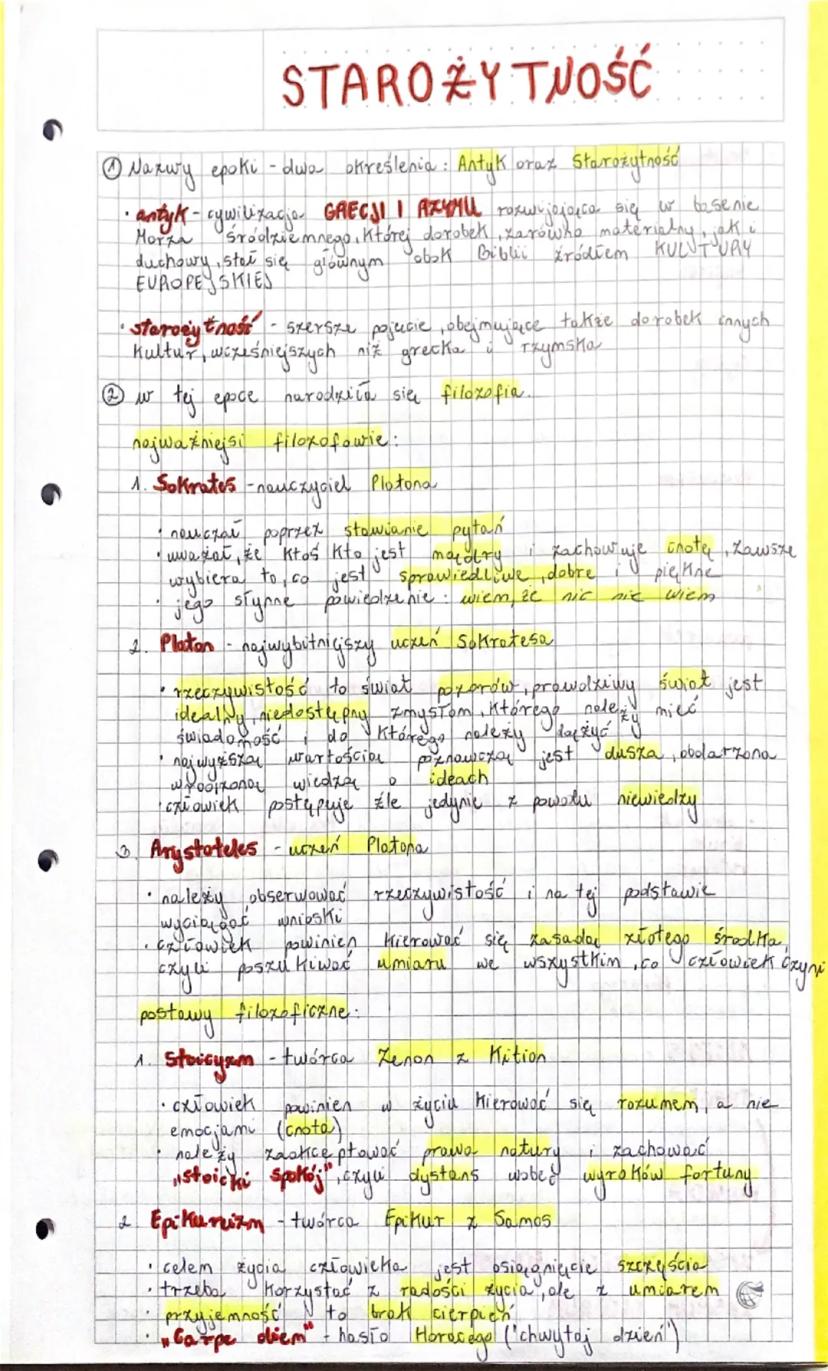 STAROŻYTNOŚĆ
① Nazwy epoki - dwa określenia: Antyk oraz Starożytność
• antyk - cywilizacja GRECJI I RZYMU rozwijająca się w basenie
Morza Śródziemnego, której dorobek, zarówno materialny, jak i
duchowy, stał się głównym obok Biblii źródłem KULTURY
EUROPEJSKIEJ
• starożytność - szersze pojęcie, obejmujące także dorobek innych
kultur, wcześniejszych niż grecka i rzymska
② w tej epoce narodziła się filozofia.
najważniejsi filozofowie:
1. Sokrates - nauczyciel Platona
• nauczał poprzez stawianie pytań
• uważał, że ktoś kto jest mądry i zachowuje cnotę, zawsze
wybiera to, co jest sprawiedliwe, dobre i piękne
• jego słynne powiedzenie: wiem, że nic nie wiem
2. Platon - najwybitniejszy uczeń Sokratesa
• rzeczywistość to świat pozorów, prawdziwy świat jest
idealny, niedostępny zmysłom, którego należy mieć
świadomość i do którego należy dążyć
• najwyższą wartością poznawczą jest dusza, obdarzona
wrodzoną wiedzą o ideach
• człowiek postępuje źle jedynie z powodu niewiedzy
3. Arystoteles - uczeń Platona
• należy obserwować rzeczywistość i na tej podstawie
wyciągać wnioski
• człowiek powinien kierować się zasadą złotego środka,
czyli poszukiwać umiaru we wszystkim, co człowiek czyni
postawy filozoficzne:
1. Stoicyzm - twórca Zenon z Kition
• człowiek powinien w życiu kierować się rozumem, a nie
emocjami (cnota)
• należy zaakceptować prawa natury i zachować
"stoicki spokój", czyli dystans wobec wyroków fortuny
2. Epikureizm - twórca Epikur z Samos
• celem życia człowieka jest osiągnięcie szczęścia
• trzeba korzystać z radości życia, ale z umiarem
• przyjemność to brak cierpień
• "Carpe diem" - hasło Horacego ("chwytaj dzień")